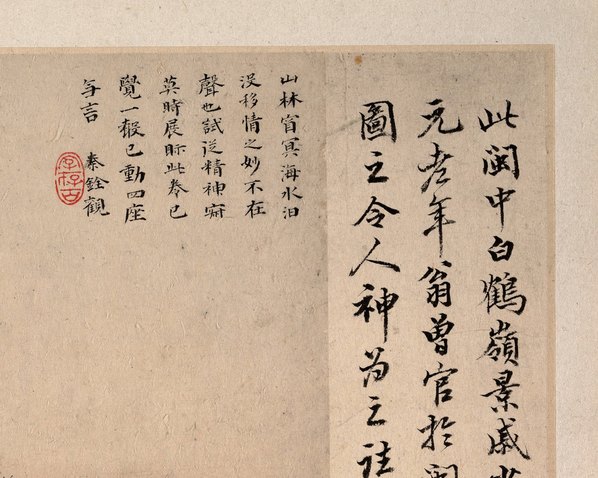 此閩中白鶴嶺景戚
元老年翁曾官於閩
圖之令人神為之詿
山林窅冥海水汩
沒移情之妙不在
聲也試從精神寂
莫時展眎此卷已
覺一轂已動四座
無言
秦銓觀